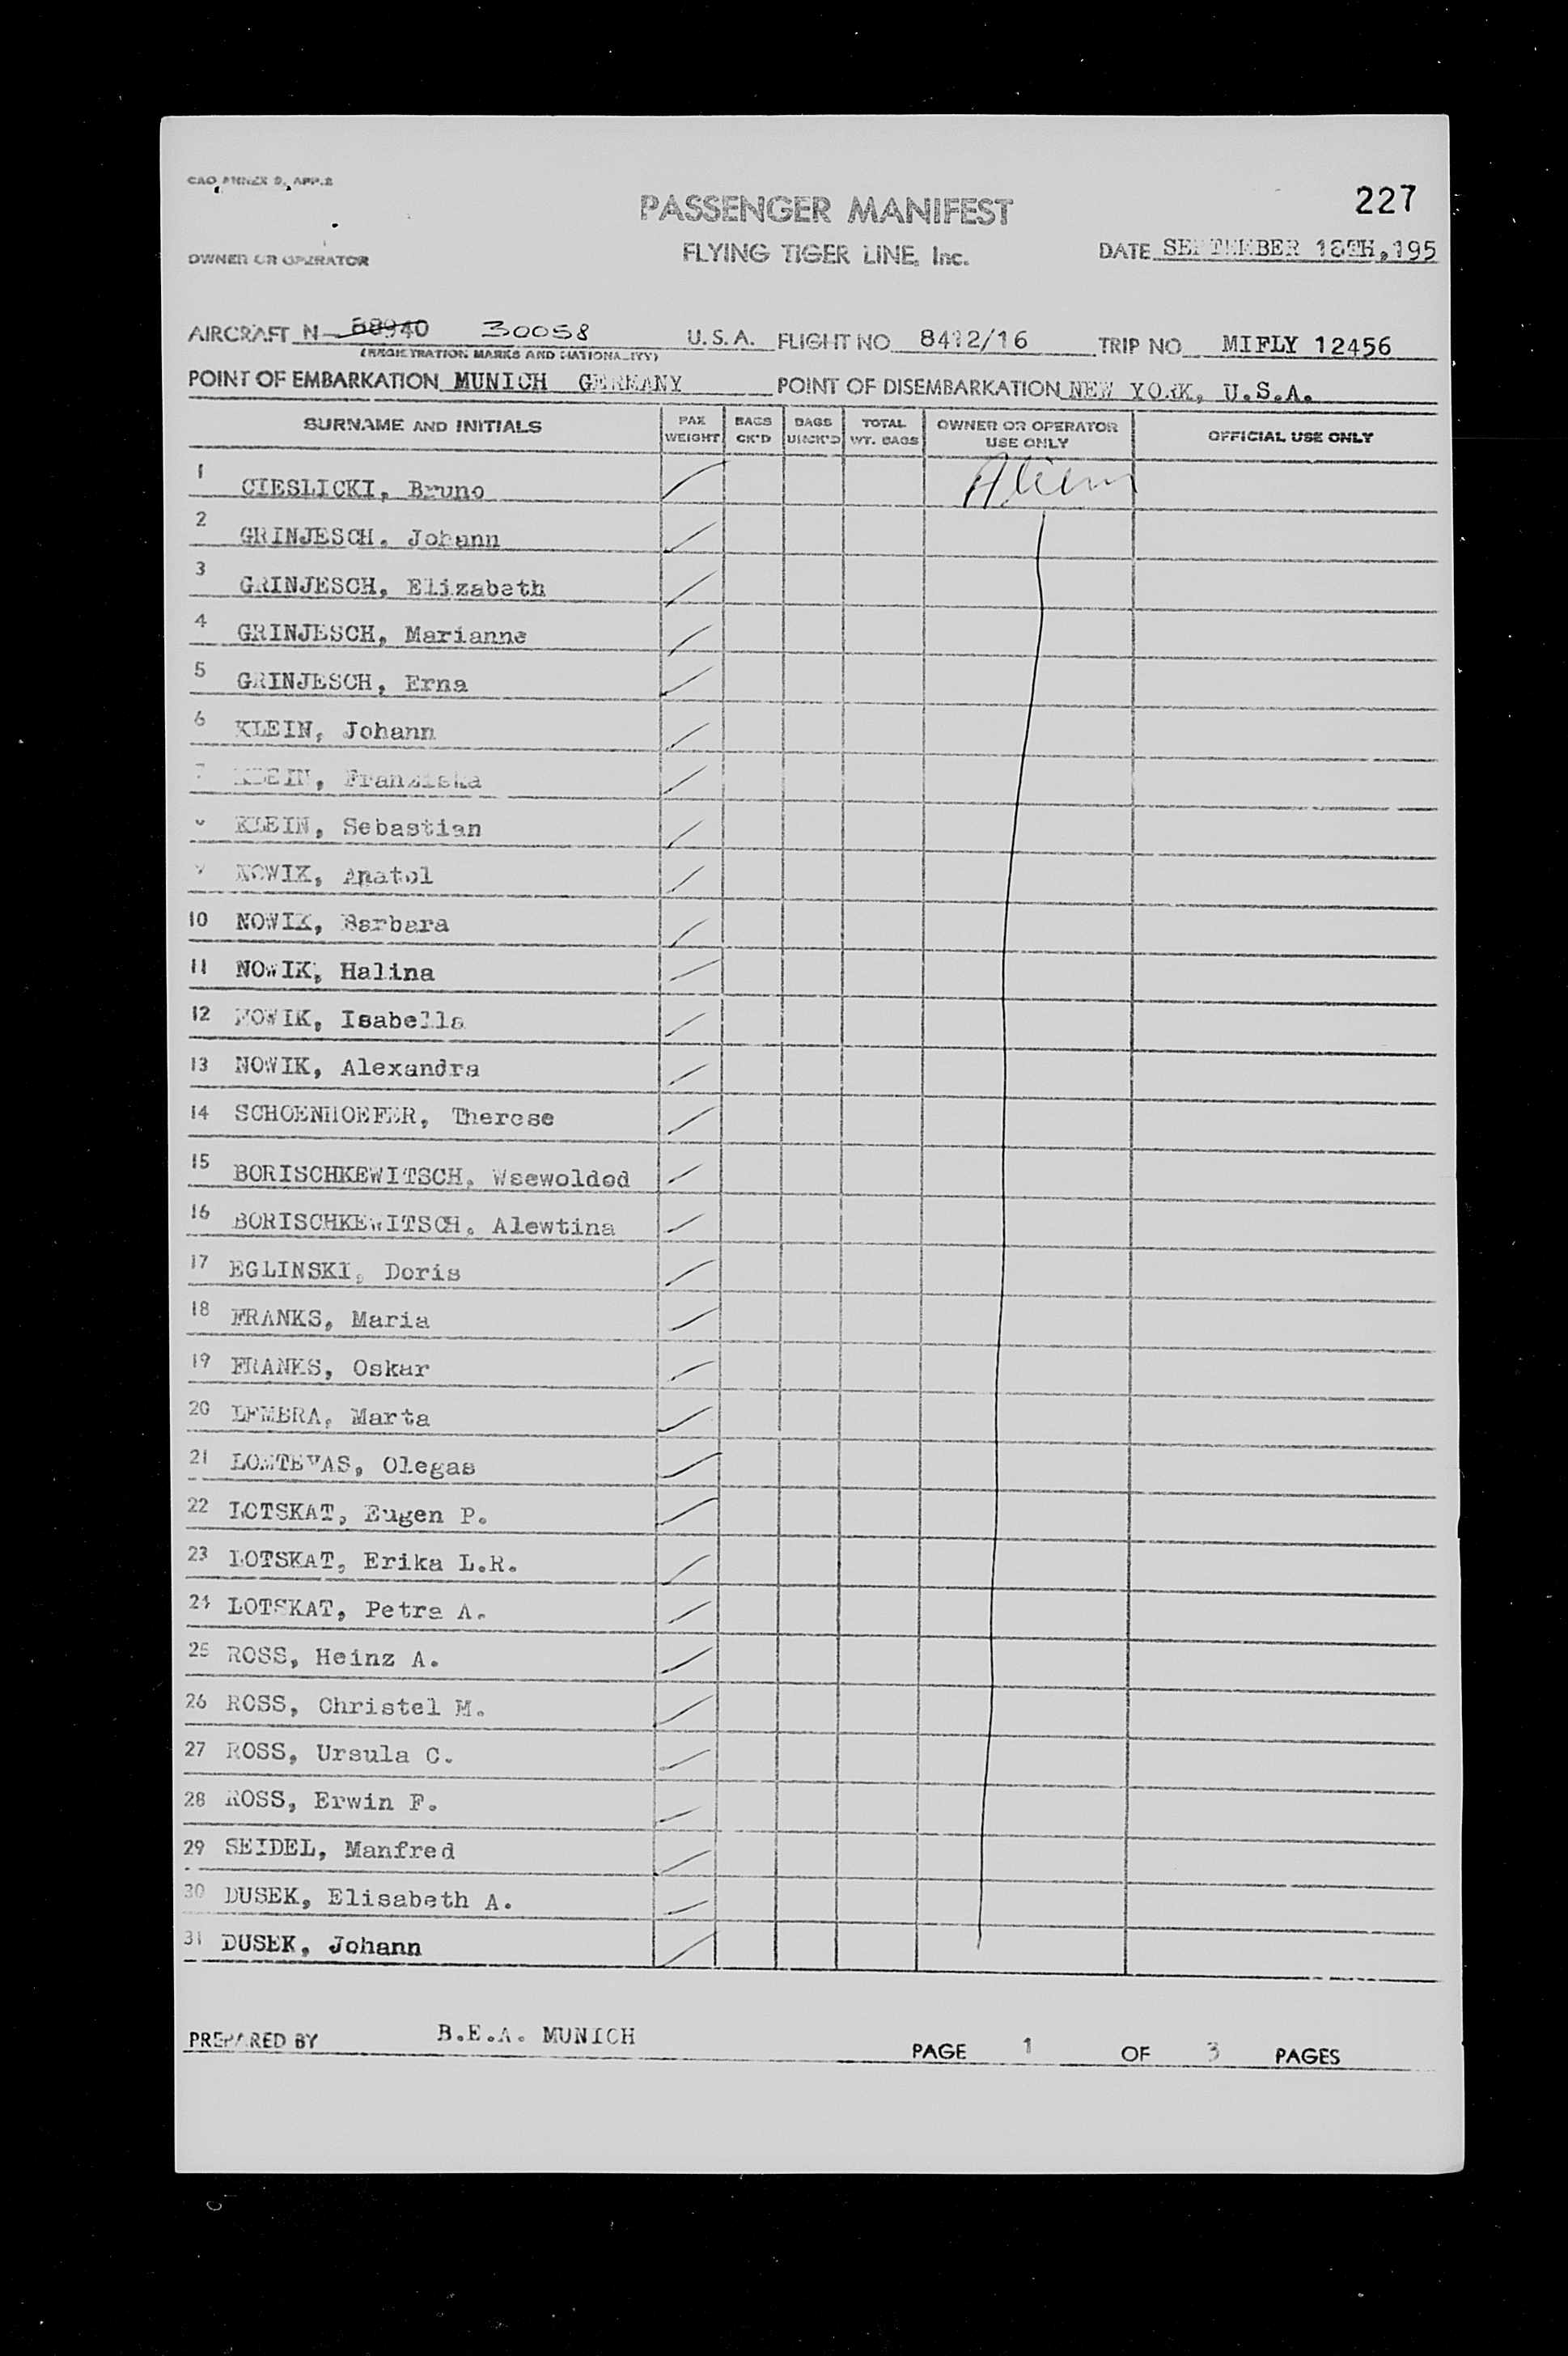 CAO ANNEX 9, APP.2
227
PASSENGER MANIFEST
OWNER OR OPERATOR
FLYING TIGER LINE, Inc.
DATE SEPTEMBER 18TH, 195
AIRCRAFT N 88940 30058 U.S.A. FLIGHT NO 8412/16 TRIP NO MIFLY 12456
(REGISTRATION MARKS AND NATIONALITY)
POINT OF EMBARKATION MUNICH GERMANY POINT OF DISEMBARKATION NEW YORK, U.S.A.
SURNAME AND INITIALS
PAX WEIGHT
BAGS CK'D
BAGS UNCK'D
TOTAL WT. BAGS
OWNER OR OPERATOR USE ONLY
OFFICIAL USE ONLY
1 CIESLICKI, Bruno Alien
2 GRINJESCH, Johann
3 GRINJESCH, Elizabeth
4 GRINJESCH, Marianne
5 GRINJESCH, Erna
6 KLEIN, Johann
7 KLEIN, Franziska
8 KLEIN, Sebastian
9 NOWIK, Anatol
10 NOWIK, Barbara
11 NOWIK, Halina
12 NOWIK, Isabella
13 NOWIK, Alexandra
14 SCHOENHOEFER, Therese
15 BORISCHKEWITSCH, Wsewolded
16 BORISCHKEWITSCH, Alewtina
17 EGLINSKI, Doris
18 FRANKS, Maria
19 FRANKS, Oskar
20 LEMBRA, Marta
21 LOMTEVAS, Olegas
22 LOTSKAT, Eugen P.
23 LOTSKAT, Erika L.R.
24 LOTSKAT, Petra A.
25 ROSS, Heinz A.
26 ROSS, Christel M.
27 ROSS, Ursula C.
28 ROSS, Erwin F.
29 SEIDEL, Manfred
30 DUSEK, Elisabeth A.
31 DUSEK, Johann
PREPARED BY B.E.A. MUNICH PAGE 1 OF 3 PAGES